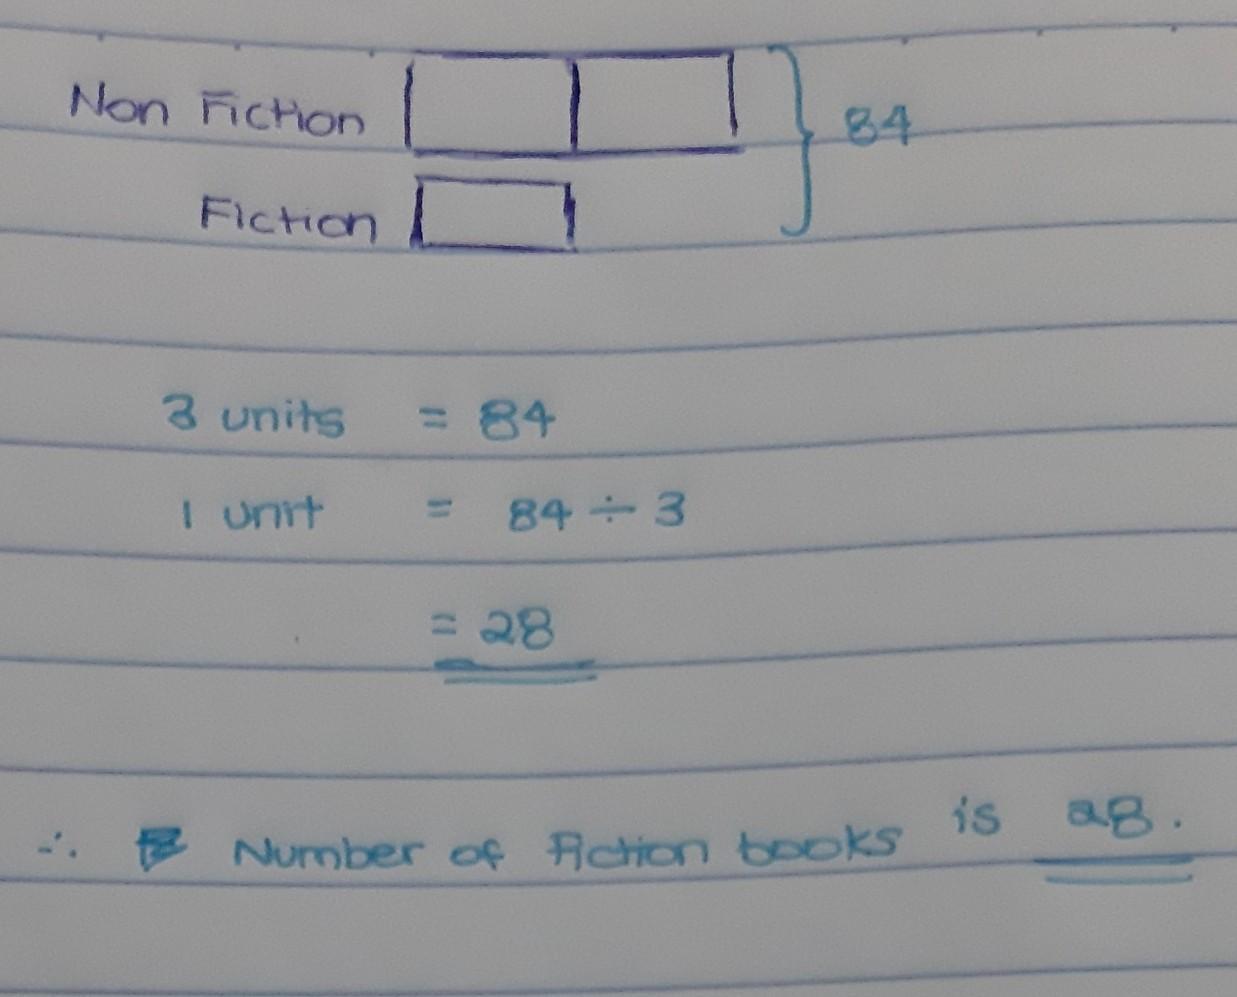 Non Fiction 84
Fiction
3 units = 84
1 unit = 84 ÷ 3
= 28
∴ Number of Fiction books is 28.